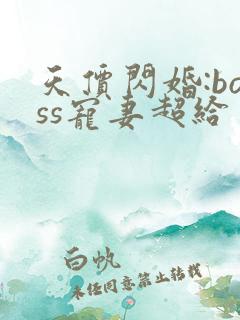 天價閃婚:bo
ss寵妻超給
白帆
未经同意禁止转载